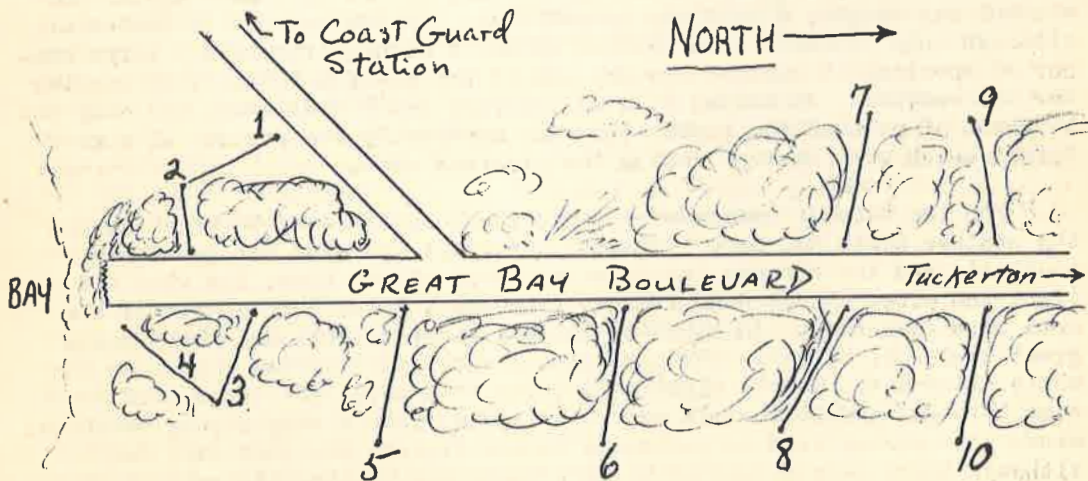 To Coast Guard
Station
NORTH
1
2
7
9
BAY
GREAT BAY BOULEVARD
Tuckerton
4
3
5
6
8
10